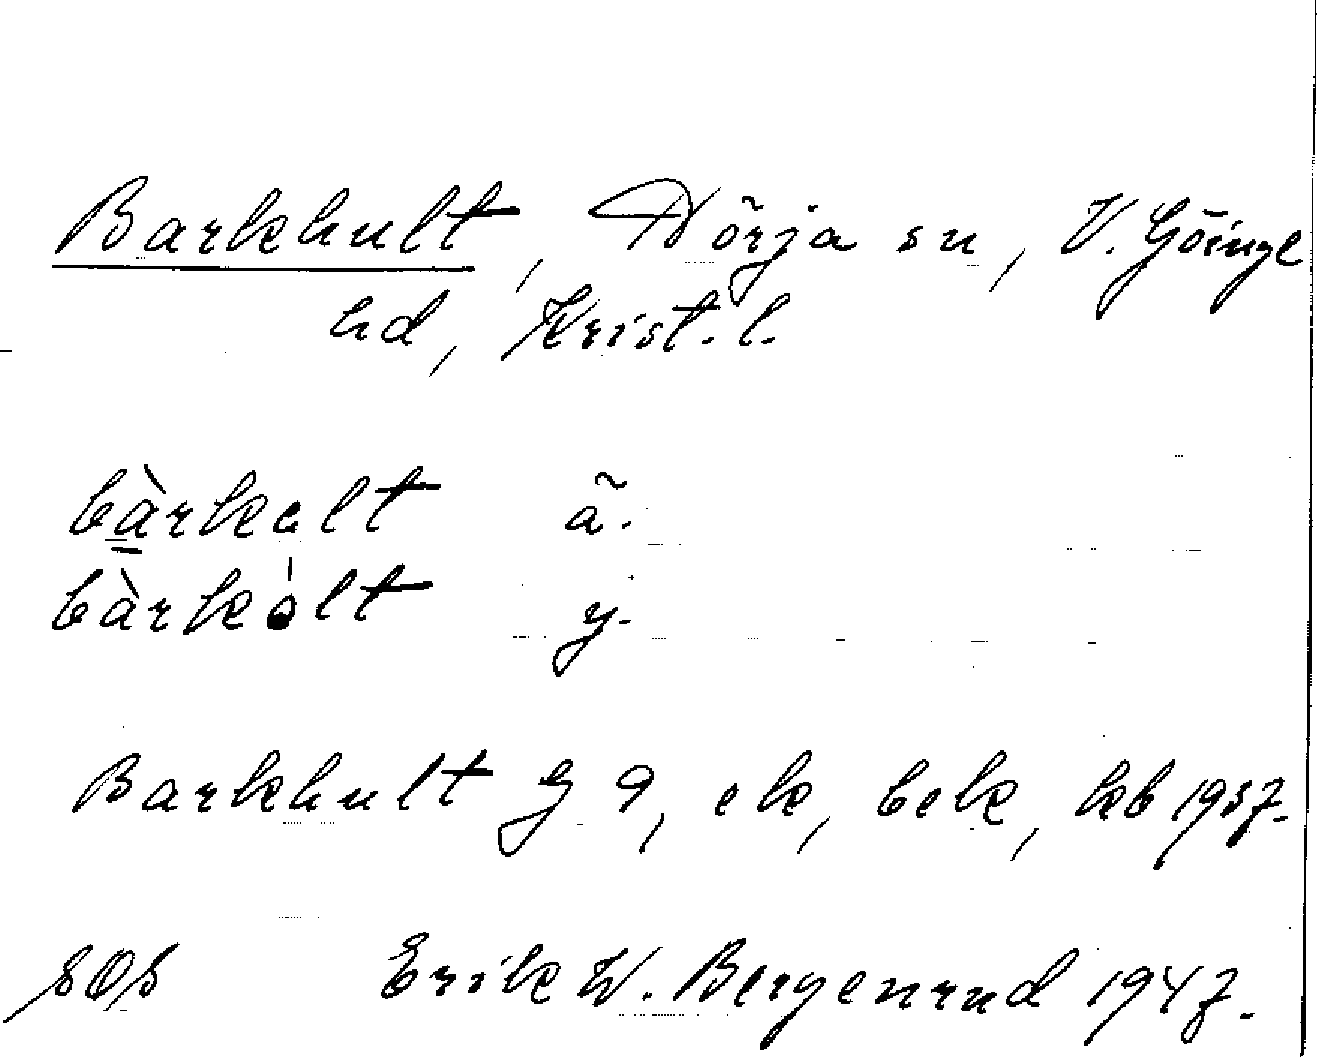 Barkhult, Nörja sn, V. Göinge
hd, Krist. l.
bàrkelt ä.
bàrkòlt y.
Barkhult G 9, ek, bebk, kb 1937.
SOS Erik W. Bergenrud 1947.